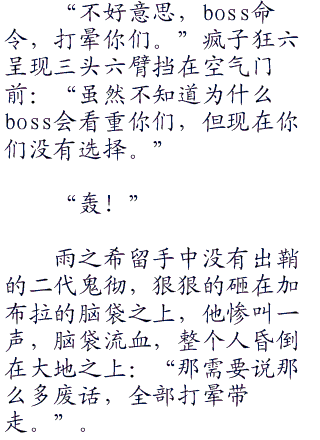 “不好意思，boss命
令，打晕你们。”疯子狂六
呈现三头六臂挡在空气门
前：“虽然不知道为什么
boss会看重你们，但现在你
们没有选择。”
“轰！”
雨之希留手中没有出鞘
的二代鬼彻，狠狠的砸在加
布拉的脑袋之上，他惨叫一
声，脑袋流血，整个人昏倒
在大地之上：“那需要说那
么多废话，全部打晕带
走。”。